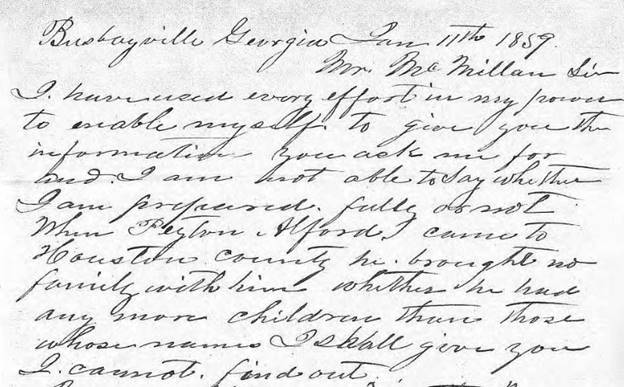 Busbayville Georgia Jan 11th 1859.
Mr. McMillan Sir
I. have used every effort in my power
to enable myself. to give you the
information you ask me for
and. I am not able to say whether
I am prepared. fully or not.
When Peyton Alford, I came to
Houston county he. brought no
family with him whether he had
any more children than those
whose names I shall give you
I. cannot. find out.